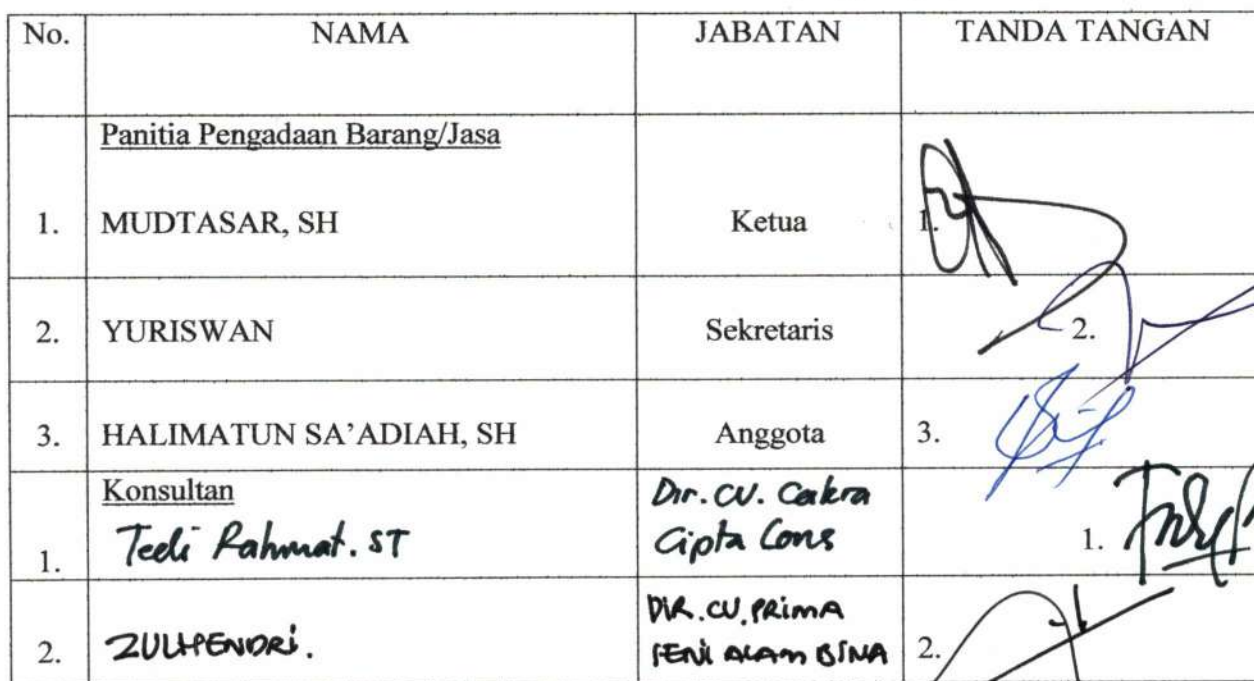 No. NAMA JABATAN TANDA TANGAN
Panitia Pengadaan Barang/Jasa
1. MUDTASAR, SH Ketua 1.
2. YURISWAN Sekretaris 2.
3. HALIMATUN SA'ADIAH, SH Anggota 3.
Konsultan Dir. CV. Cakra
1. Tedi Rahmat. ST Cipta Cons 1.
DIR. CV. PRIMA
2. ZULHENDRI. SENI ALAM BINA 2.